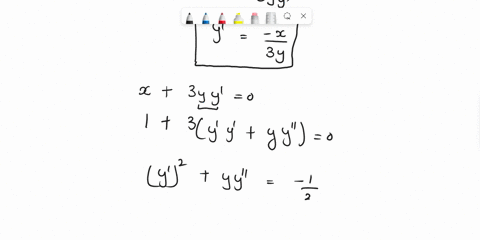 y' = -x/3y
x + 3yy' = 0
1 + 3(y'y' + yy'') = 0
(y')² + yy'' = -1/2